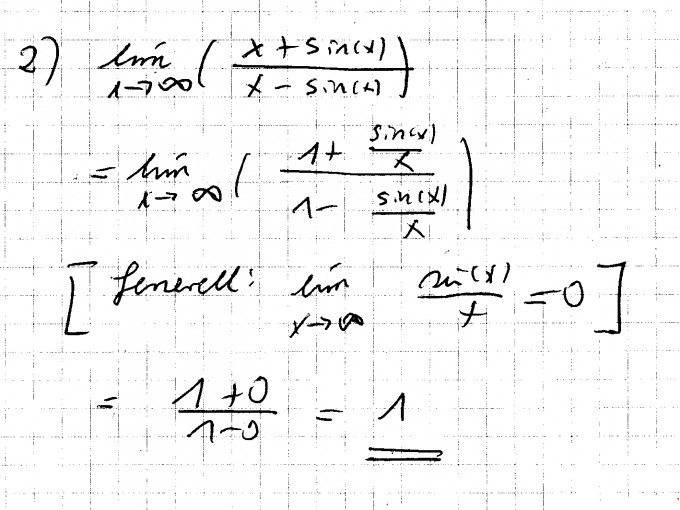 2) lim x→∞ ( (x + sin(x)) / (x - sin(x)) )
= lim x→∞ ( (1 + sin(x)/x) / (1 - sin(x)/x) )
[ Generell: lim x→∞ sin(x)/x = 0 ]
= (1+0)/(1-0) = 1